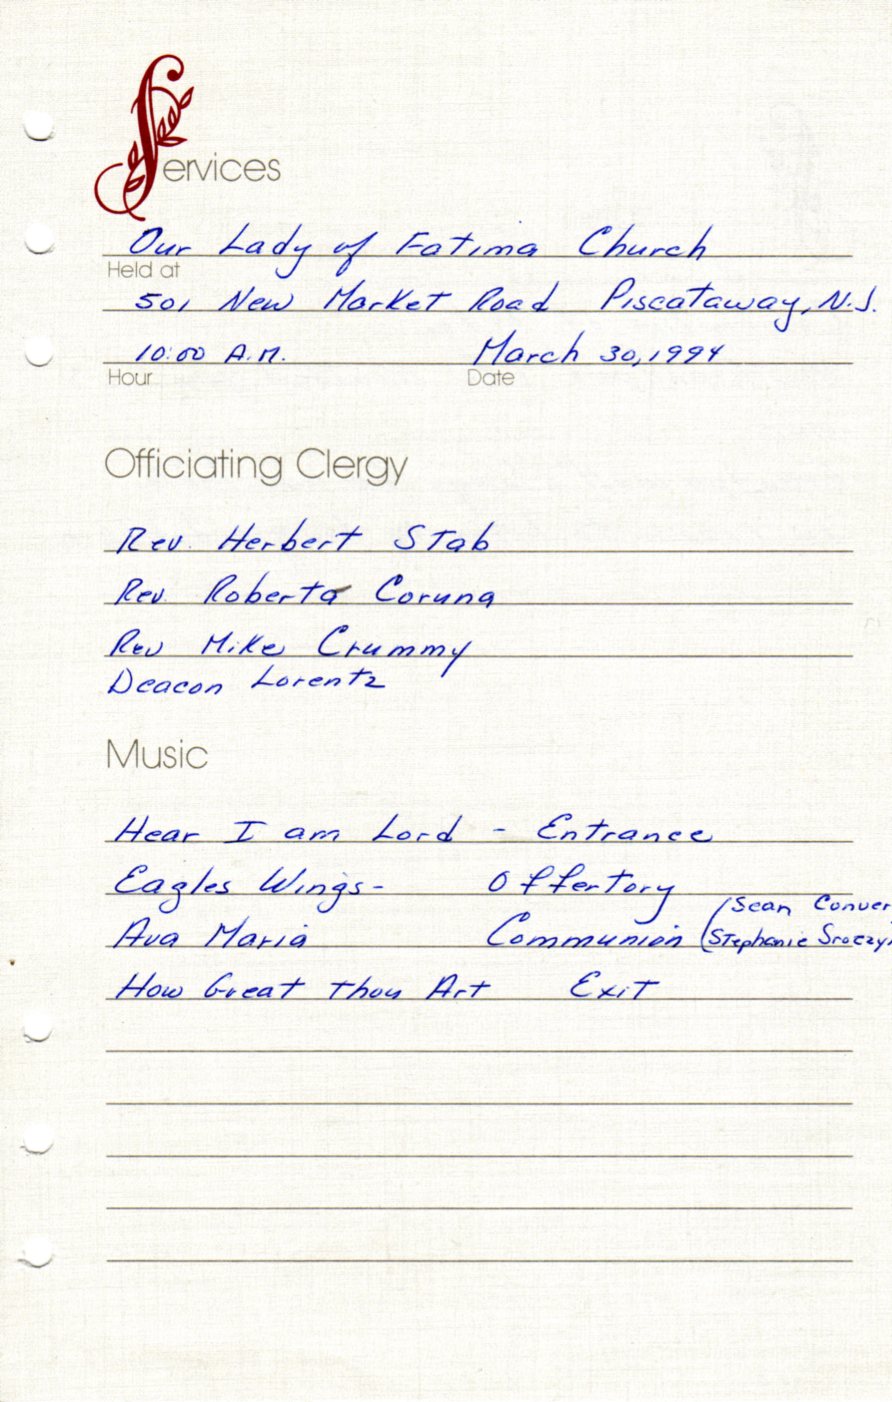 Services
Our Lady of Fatima Church
Held at
501 New Market Road Piscataway, N.J.
10:00 A.M. March 30, 1994
Hour Date
Officiating Clergy
Rev. Herbert Stab
Rev. Roberta Coruna
Rev Mike Crummy
Deacon Lorentz
Music
Hear I am Lord - Entrance
Eagles Wings- Offertory
(Sean
Ava Maria Communion (Stephanie
How Great Thou Art Exit